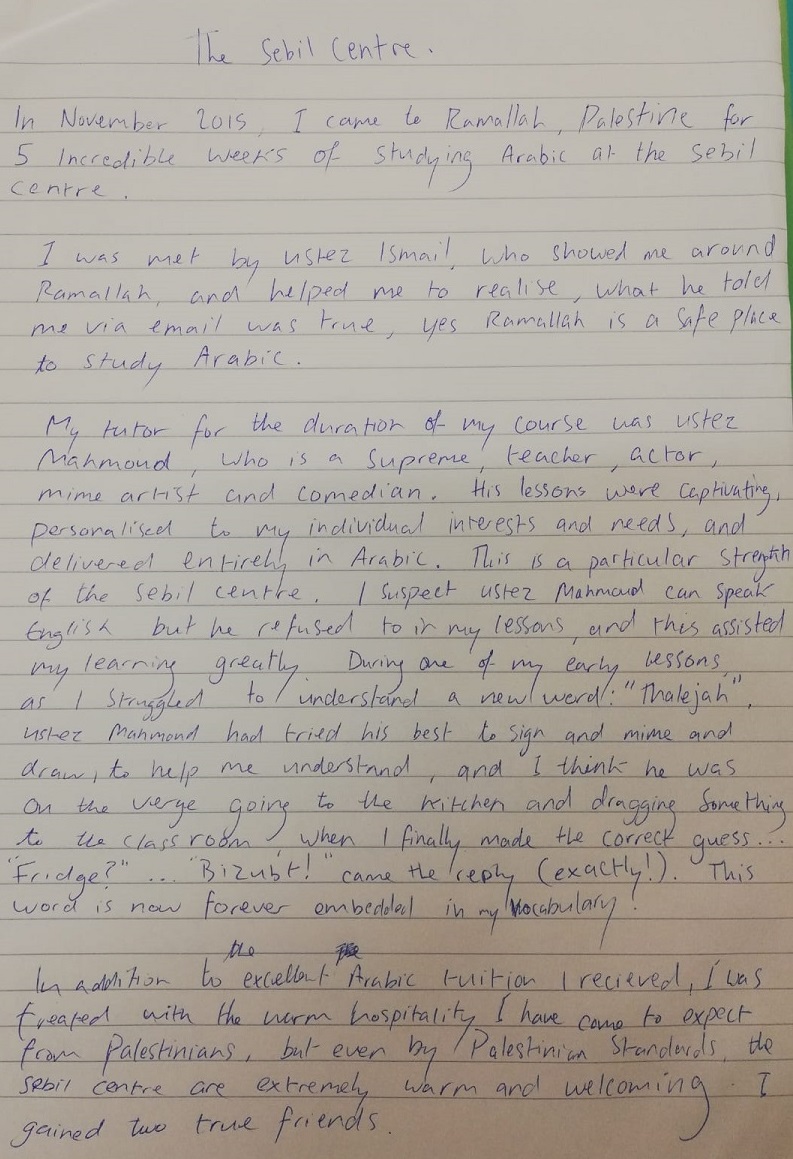 The Sebil Centre.
In November 2015, I came to Ramallah, Palestine for
5 Incredible weeks of studying Arabic at the sebil
centre.
I was met by ustez Ismail, who showed me around
Ramallah, and helped me to realise, what he told
me via email was true, yes Ramallah is a safe place
to study Arabic.
My tutor for the duration of my course was ustez
Mahmoud, who is a supreme, teacher, actor,
mime artist and comedian. His lessons were captivating,
personalised to my individual interests and needs, and
delivered entirely in Arabic. This is a particular strength
of the sebil centre. I suspect ustez Mahmoud can speak
English but he refused to in my lessons, and this assisted
my learning greatly. During one of my early lessons,
as I struggled to understand a new word: "Thalejah",
ustez Mahmoud had tried his best to sign and mime and
draw, to help me understand, and I think he was
on the verge going to the kitchen and dragging something
to the classroom, when I finally made the correct guess...
"Fridge?" ... "Bizubt!" came the reply (exactly!). This
word is now forever embedded in my vocabulary!
the
In addition to excellent Arabic tuition I recieved, I was
treated with the warm hospitality I have come to expect
from Palestinians, but even by Palestinian standards, the
sebil centre are extremely warm and welcoming. I
gained two true friends.